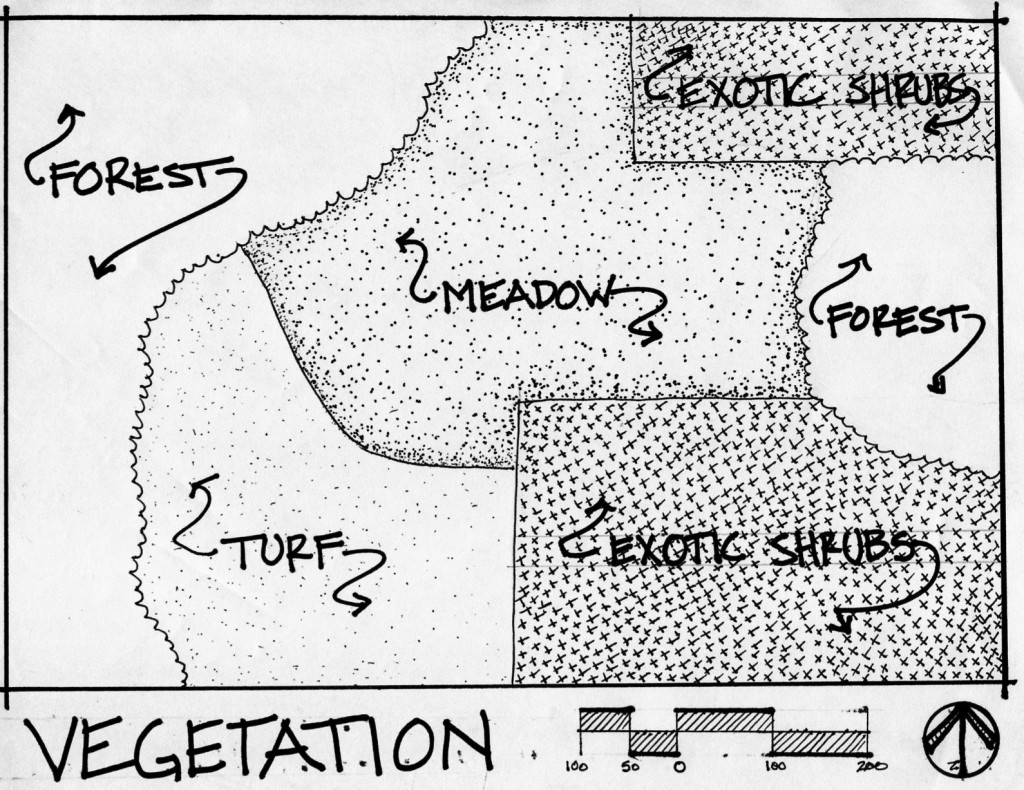 EXOTIC SHRUBS
FOREST
MEADOW
FOREST
TURF
EXOTIC SHRUBS
VEGETATION
100 50 0 100 200
N